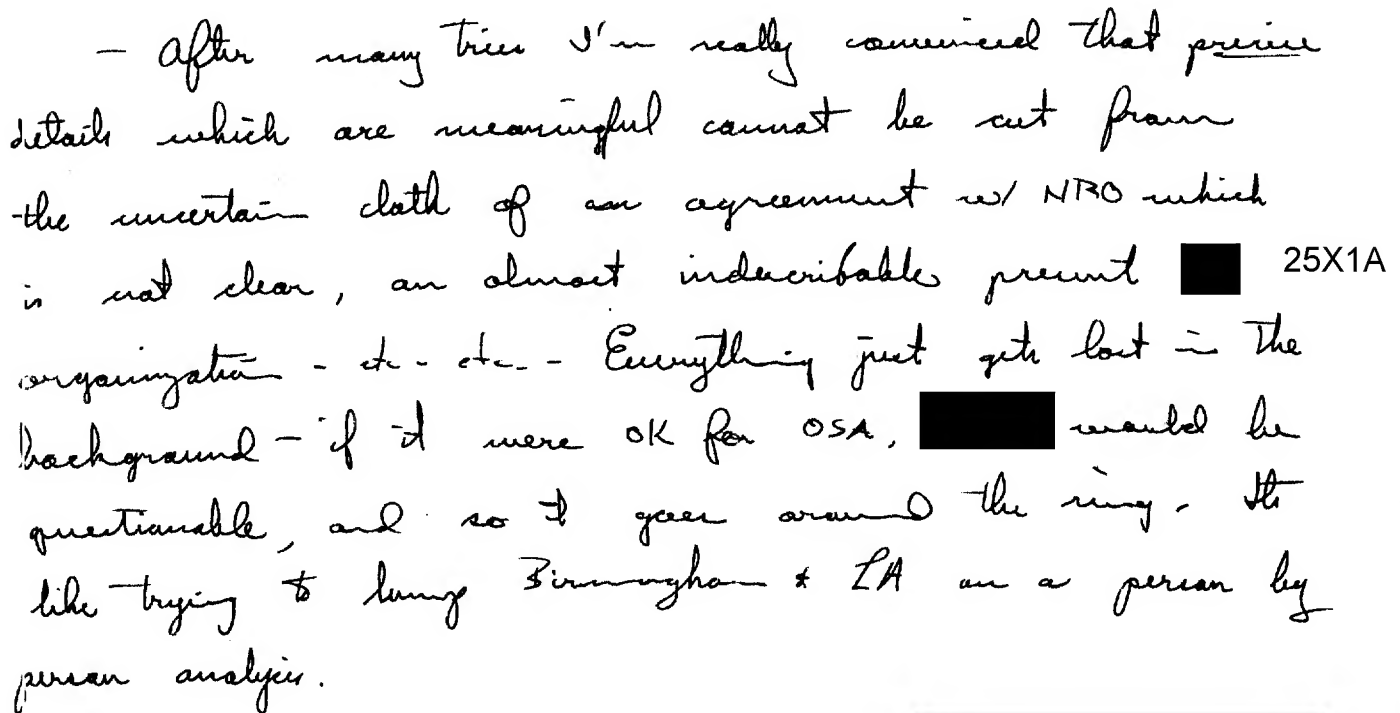 - After many tries I'm really convinced that precise
details which are meaningful cannot be cut from
the uncertain cloth of an agreement w/ NRO which
is not clear, an almost indescribable present 25X1A
organization - etc - etc. - Everything just gets lost in the
background - if it were OK for OSA, would be
questionable, and so it goes around the ring. Its
like trying to lump Birmingham & LA on a person by
person analysis.